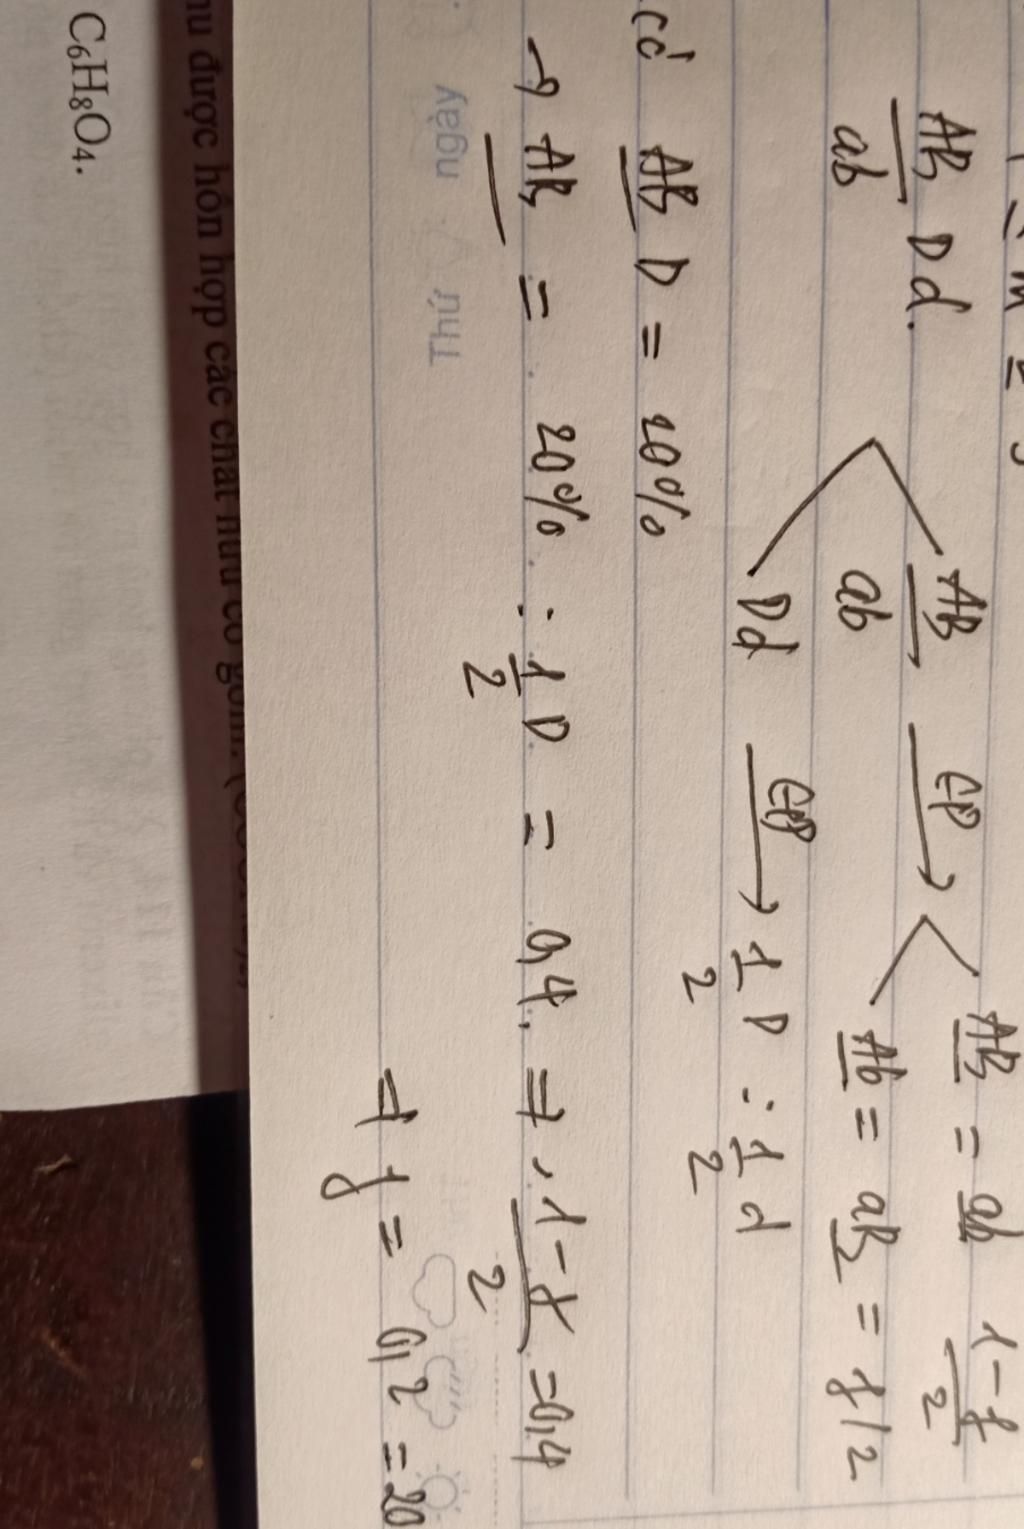 AB/ab Dd.
AB/ab GP→ AB = ab 1-f/2
Ab = aB = f/2
Dd GP→ 1/2 D : 1/2 d
có AB D = 20%
→ AB = 20% : 1/2 D = 0,4. ⇒ 1-f/2 = 0,4
⇒ f = 0,2 = 20
Thứ ngày
được hỗn hợp các chất hữu cơ gồm:
C₆H₈O₄.